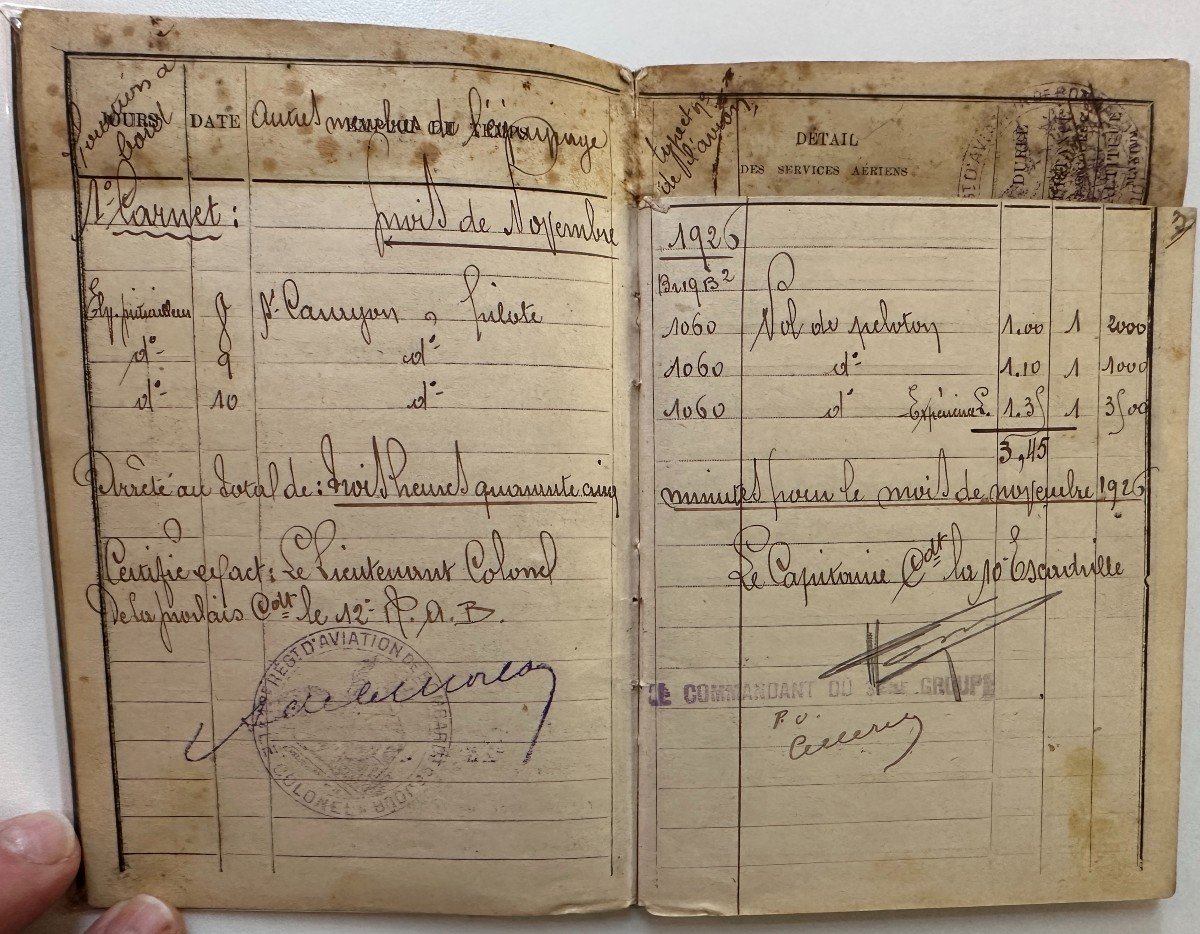 Fonctions à bord
JOURS DATE EMPLOI DU TEMPS
Autres membres de l'équipage
type et no de l'avion
DÉTAIL
DES SERVICES AÉRIENS
DURÉE
ALTITUDE
1er Carnet : mois de Novembre 1926
Br 19 B2
El. mitrailleur 8 Pilote 1060 Vol de peloton 1.00 1 2000
do 9 do 1060 do 1.10 1 1000
do 10 do 1060 do 1.35 1 3500
3,45
Arrêté au total de : Trois heures quarante cinq minutes pour le mois de novembre 1926
Certifié exact : Le Lieutenant Colonel
Cdt le 12e R. A. B.
Le Capitaine Cdt la 10e Escadrille
RÉGT D'AVIATION DE BOMBARDT
COLONEL
LE COMMANDANT DU GROUPE
P.O.